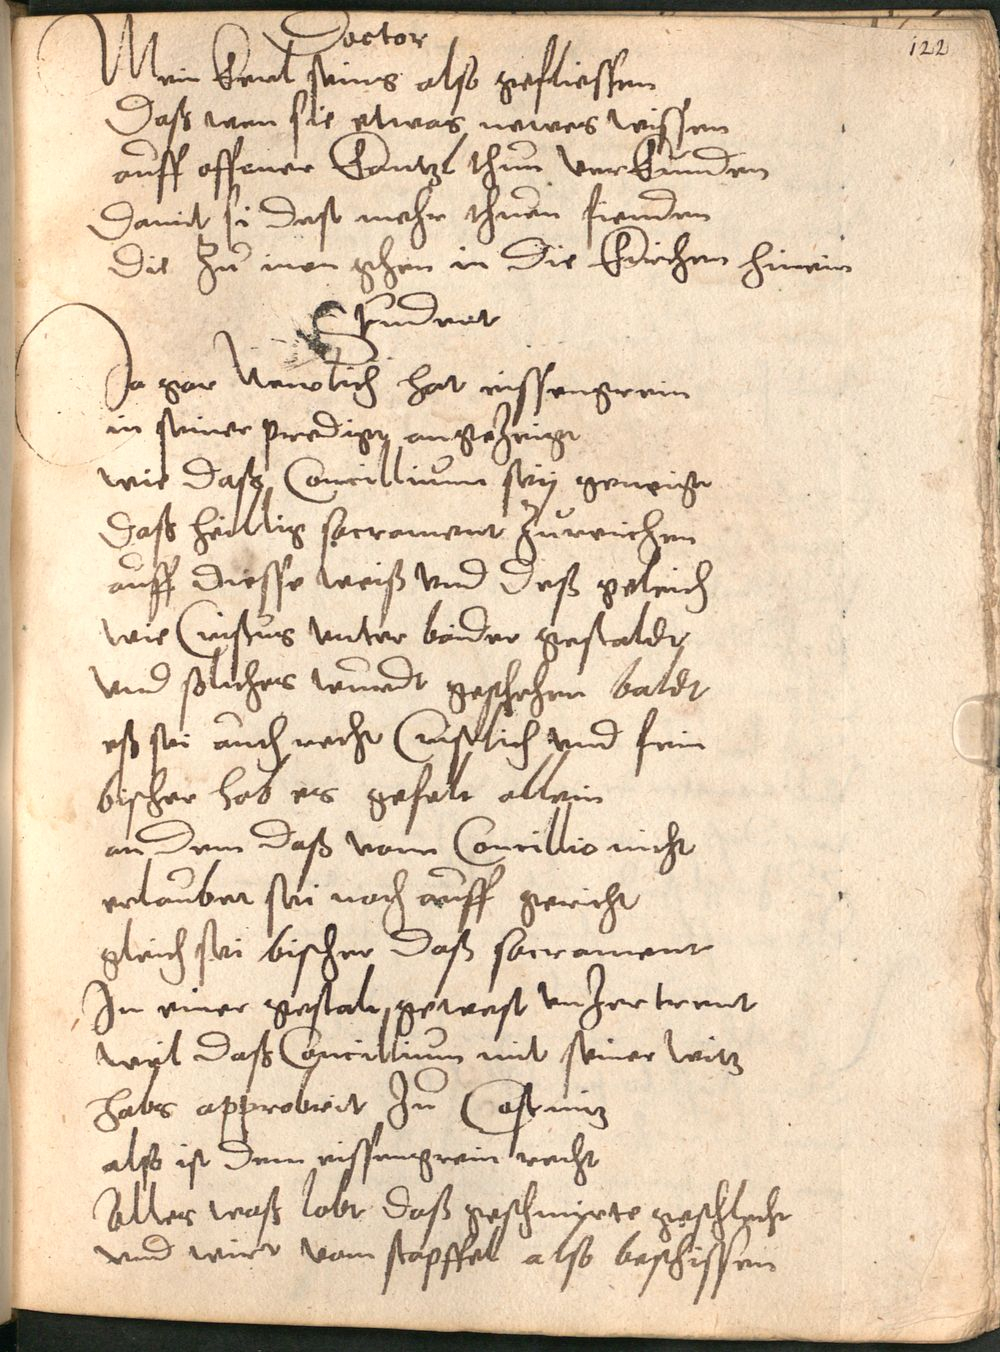 122
Doctor
Mein Kerl seins also geflissen
Daß wen sie etwas newes wissen
auff offener Cantzl thun verkunden
Damit si dest mehr thuen finden
die zu inen gehen in die Kirchen hinein
Student
Ja gar Newlich hat eissengrein
in seiner predigt angezeigt
wie daß Concillium sey geneigt
daß heillig sacrament zu reichen
auff diesse weiß vnd deß geleich
wie Cristus vnter baider gestaldt
vnd solliches wurdt geschehen baldt
eß sei auch recht Cristlich vnd fein
bischer hab es gefelt allein
an dem daß vom Concillio nicht
erlaubet sei noch auff gericht
gleich sei bischer daß sacrament
In einer gestalt gewest vnzertrent
weil daß Concillium mit seiner witz
habs approbiert zu Costnitz
also ist dem eissengrein recht
Alles waß lobt daß geschmirte geschlecht
vnd wirt vom stapffel also beschissen